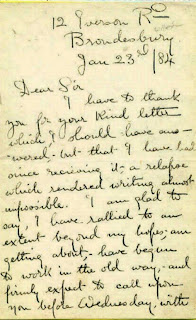 12 Everson Rd
Brondesbury
Jan 23rd/84
Dear Sir
I have to thank
you for your kind letter
which I should have ans-
-wered, but that I have had
since receiving it a relapse
which rendered writing almost
impossible. I am glad to
say, I have rallied to an
extent beyond my hopes, am
getting about, have begun
to work in the old way, and
firmly expect to call upon
you before Wednesday, with